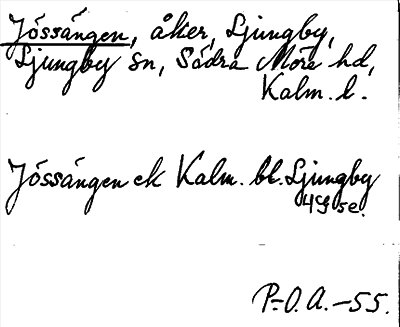 Jössängen, åker, Ljungby,
Ljungby sn, Södra Möre hd,
Kalm. l.
Jössängen ek Kalm. bl. Ljungby
4g se.
P.-O. A. -55.